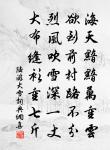 海天黯黯萬重雲
欲到前村路不分
烈風吹雪深一丈
大布縫衫重七斤
陸游大雪詞